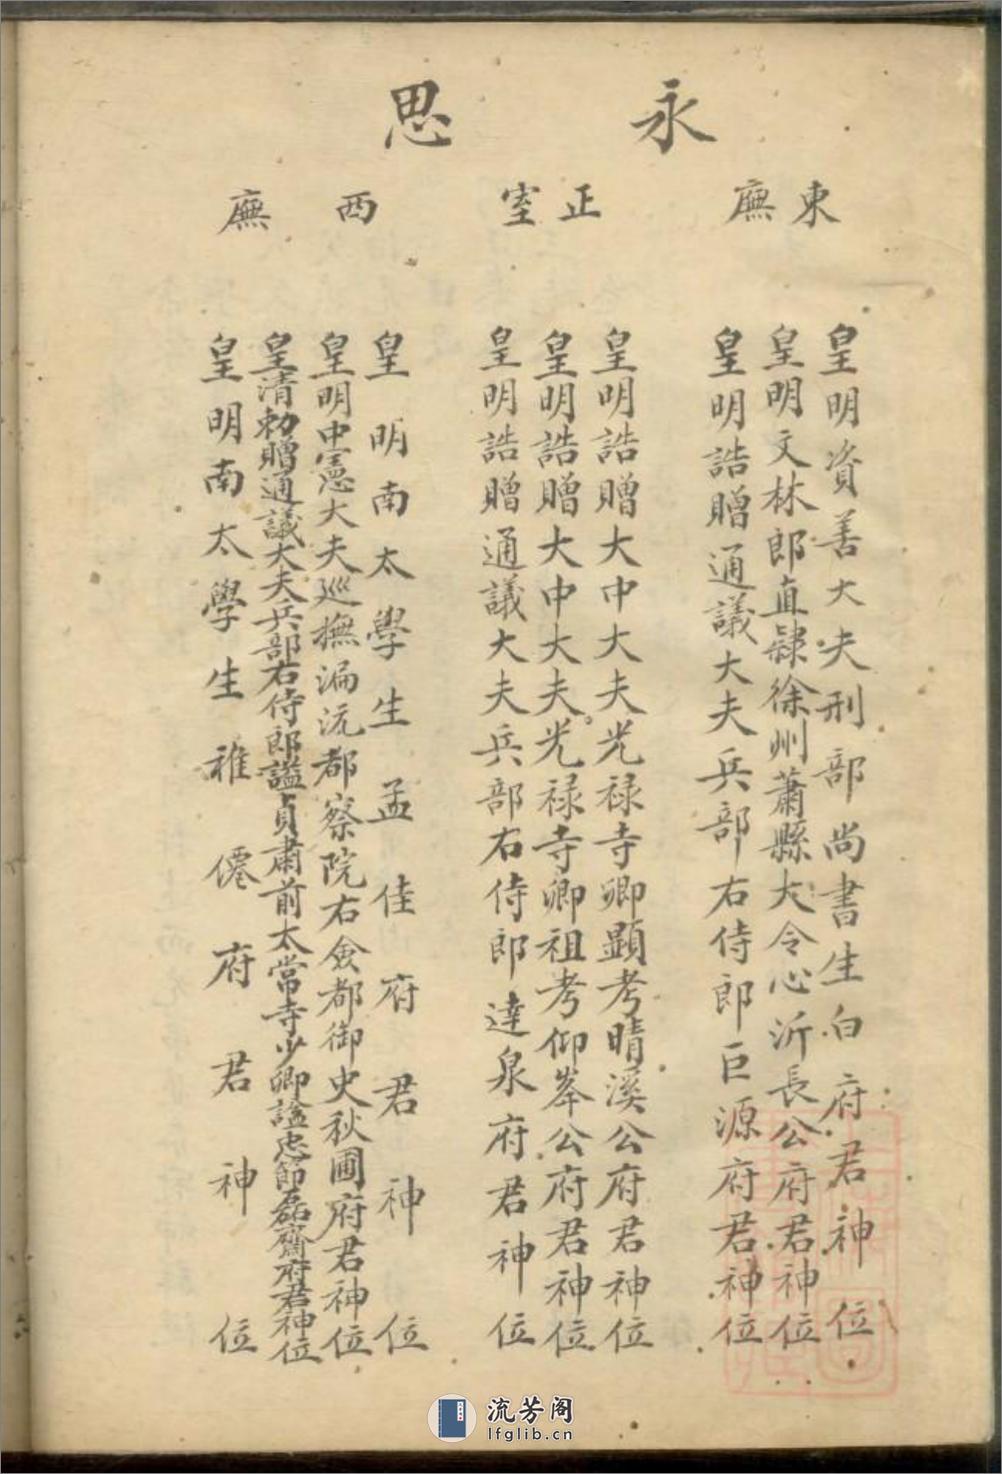 永思
東廡
正室
西廡
皇明資善大夫刑部尚書生白府君神位
皇明文林郎直隸徐州蕭縣大令心沂長公府君神位
皇明誥贈通議大夫兵部右侍郎巨源府君神位
皇明誥贈大中大夫光祿寺卿顯考晴溪公府君神位
皇明誥贈大中大夫光祿寺卿祖考仰峯公府君神位
皇明誥贈通議大夫兵部右侍郎達泉府君神位
皇明南太學生孟佳府君神位
皇明中憲大夫巡撫漏沅都察院右僉都御史秋圃府君神位
皇清勅贈通議大夫兵部右侍郎謚貞肅前太常寺少卿諡忠節磊齋府君神位
皇明南太學生稚僊府君神位
流芳阁
lfglib.cn